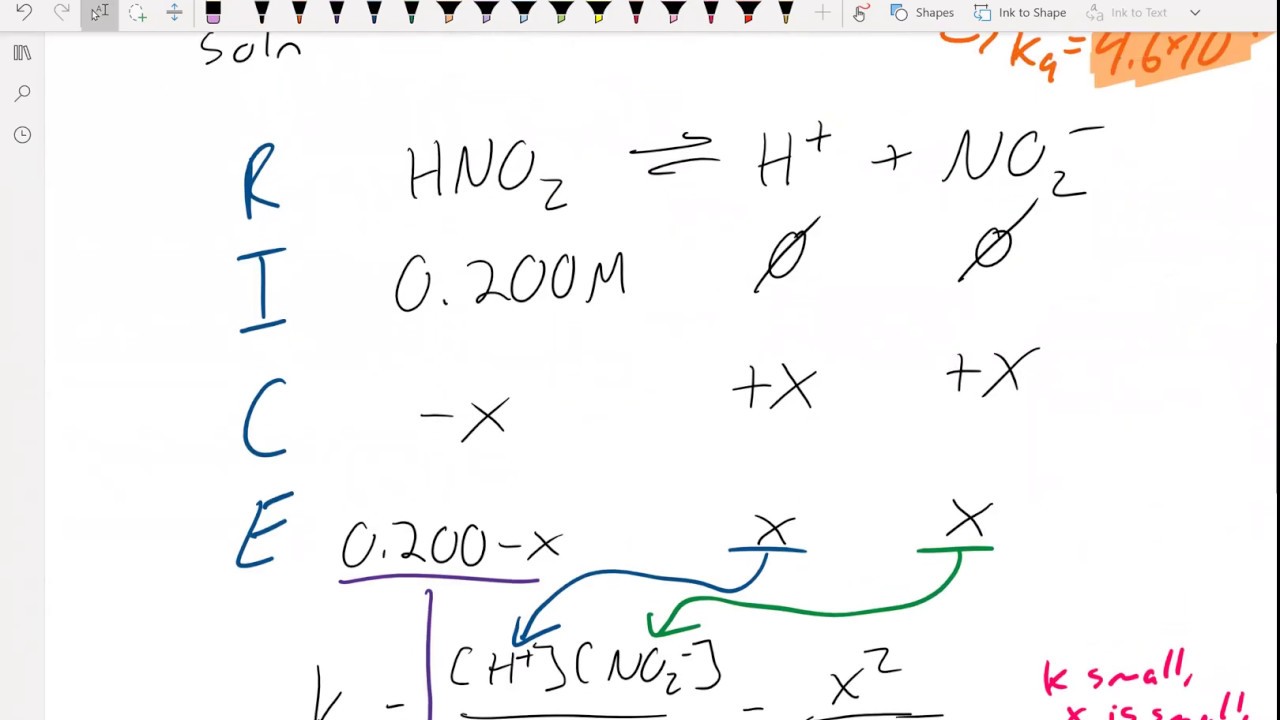 Shapes Ink to Shape Ink to Text
Soln
Ka = 4.6x10
R HNO₂ ⇌ H⁺ + NO₂⁻
I 0.200M Ø Ø
C -x +x +x
E 0.200-x x x
[H⁺][NO₂⁻] = x²
K =
k small,
x is small,